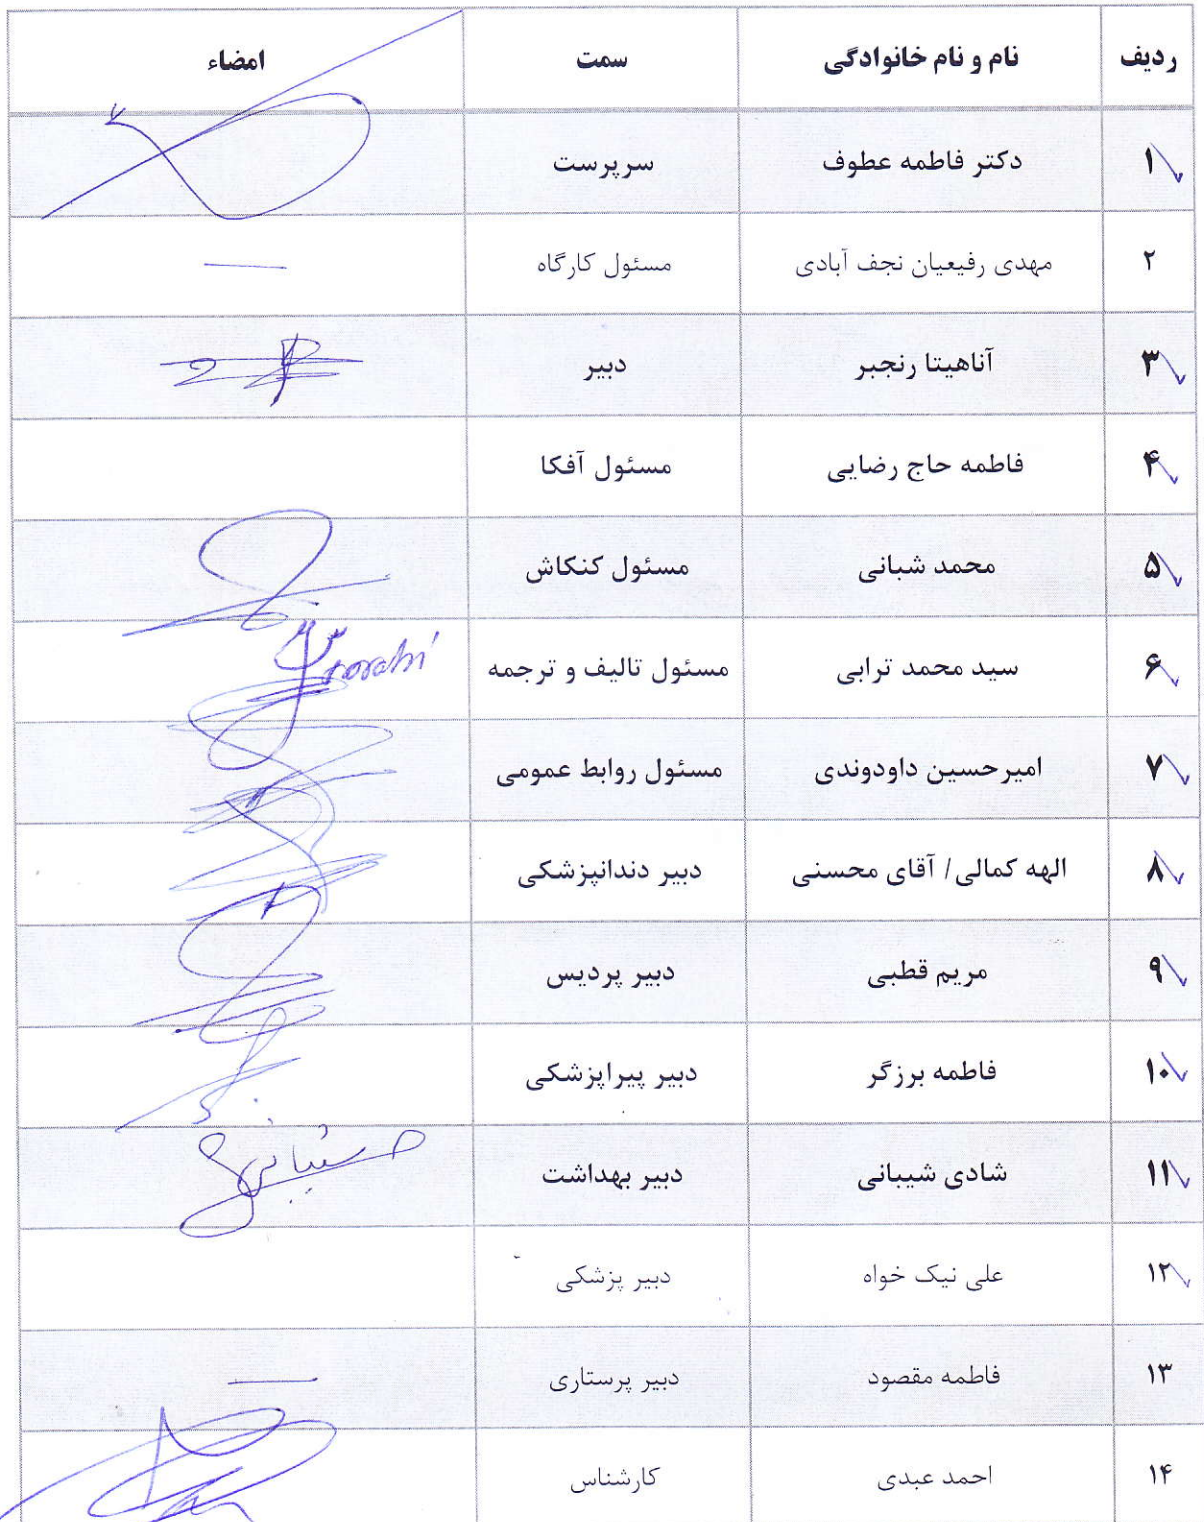 ردیف نام و نام خانوادگی سمت امضاء
۱ دکتر فاطمه عطوف سرپرست
۲ مهدی رفیعیان نجف آبادی مسئول کارگاه —
۳ آناهیتا رنجبر دبیر
۴ فاطمه حاج رضایی مسئول آفکا
۵ محمد شبانی مسئول کنکاش
۶ سید محمد ترابی مسئول تالیف و ترجمه
۷ امیرحسین داودوندی مسئول روابط عمومی
۸ الهه کمالی/ آقای محسنی دبیر دندانپزشکی
۹ مریم قطبی دبیر پردیس
۱۰ فاطمه برزگر دبیر پیراپزشکی
۱۱ شادی شیبانی دبیر بهداشت
۱۲ علی نیک خواه دبیر پزشکی
۱۳ فاطمه مقصود دبیر پرستاری —
۱۴ احمد عبدی کارشناس